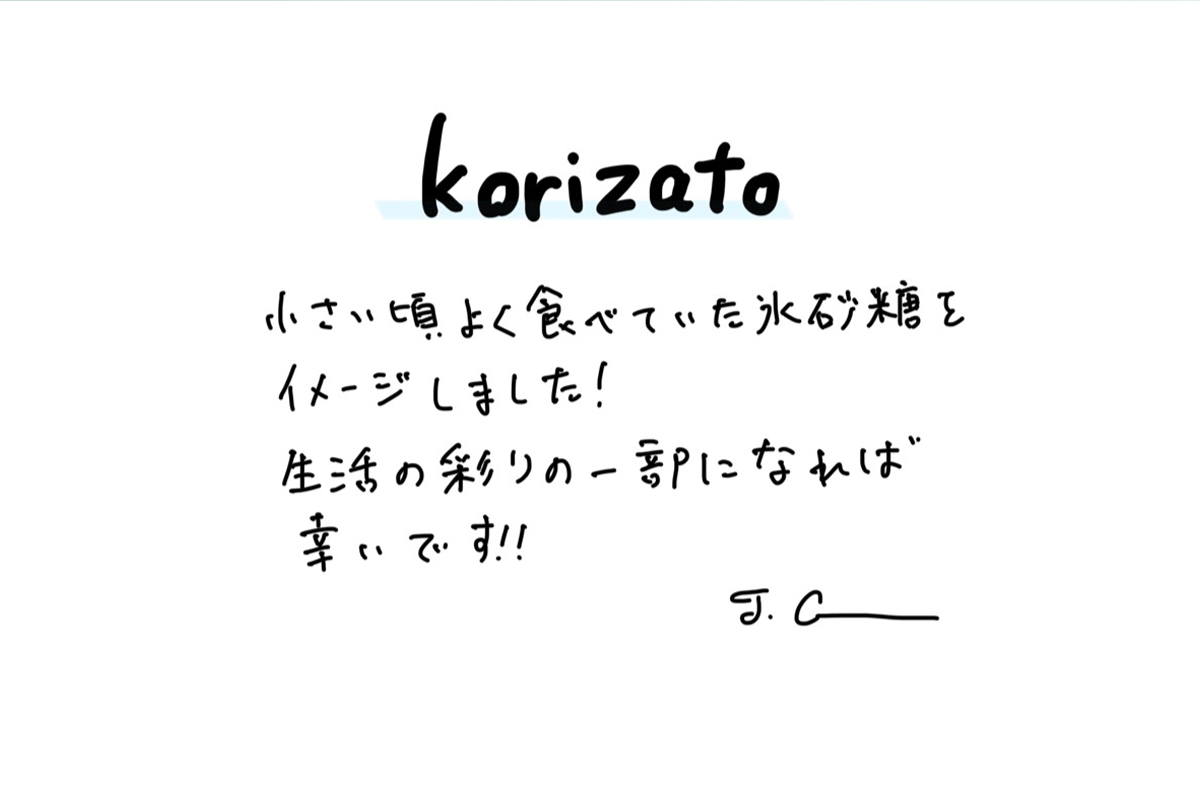 korizato
小さい頃よく食べていた氷砂糖を
イメージしました!
生活の彩りの一部になれば
幸いです!!
J. C